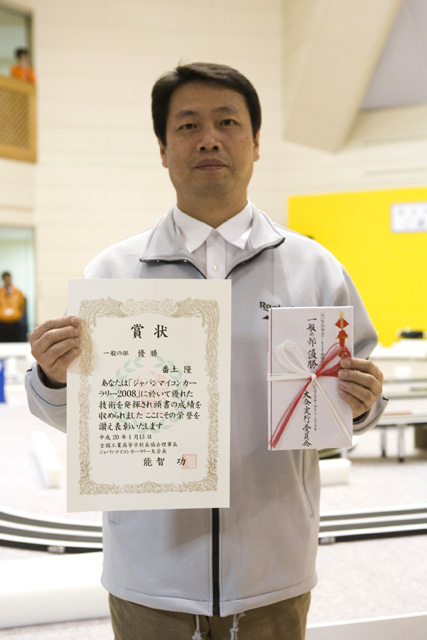 賞状
一般の部 優勝
番土 隆
あなたは「ジャパンマイコンカー
ラリー2008」に於いて優れた
技術を発揮され頭書の成績を
収められました ここにその栄誉を
讃え表彰いたします
平成20年1月13日
全国工業高等学校長協会理事長
ジャパンマイコンカーラリー大会長
能智 功
一般の部 優勝
大会実行委員会